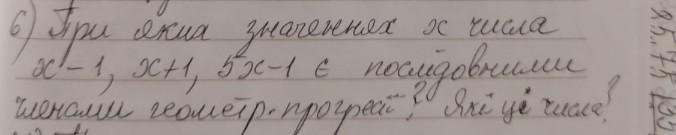 6) При яких значеннях x числа
x-1, x+1, 5x-1 є послідовними
членами геометр. прогресії? Які ці числа?